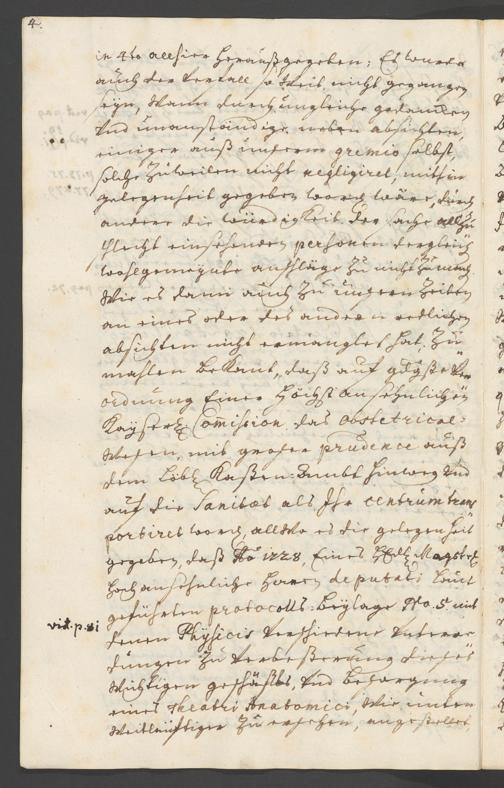 4.
in 4to allhier heraußgegeben; Es wurde
auch der Verfall so weit nicht gegangen
seyn, Wann durch ungleiche gedancken
und unanständige neben absichten,
einiger auß unserem gremio selbst,
solche Zuweilen nicht negligiret, mithin
gelegenheit gegeben word. wäre, durch
andere die würdigkeit der sache allzu
schlecht einsehenden personen dergleich.
wohlgemeynte anschläge Zu nicht Zu mach.
Wie es dann auch Zu unseren Zeiten
an eines oder des anderen redlichen
absichten nicht ermanglet hat, Zu
mahlen bekant, daß auf gdgste Ver
ordnung Einer Höchst ansehnlichen
Kayserl. Comission, das obstetrical-
Wesen, mit großer prudence auß
dem Löbl. Kasten-Ambt hinweg und
auf die Sanitaet als Ihr centrum trans
portiret word., allwo es die gelegenheit
gegeben, daß Ao 1728, Eines HEdl. Magstr.
Hochansehnliche Herren deputati laut
geführten protocolls-beylage No. 5 mit
vid. p. 81
denen Physicis verschiedene Unterre
dungen Zu Verbeßerung dieses
Wichtigen geschäffts, und besorgung
eines Theatri Anatomici, wie unten
Weitläuftiger Zu ersehen, angestellet,